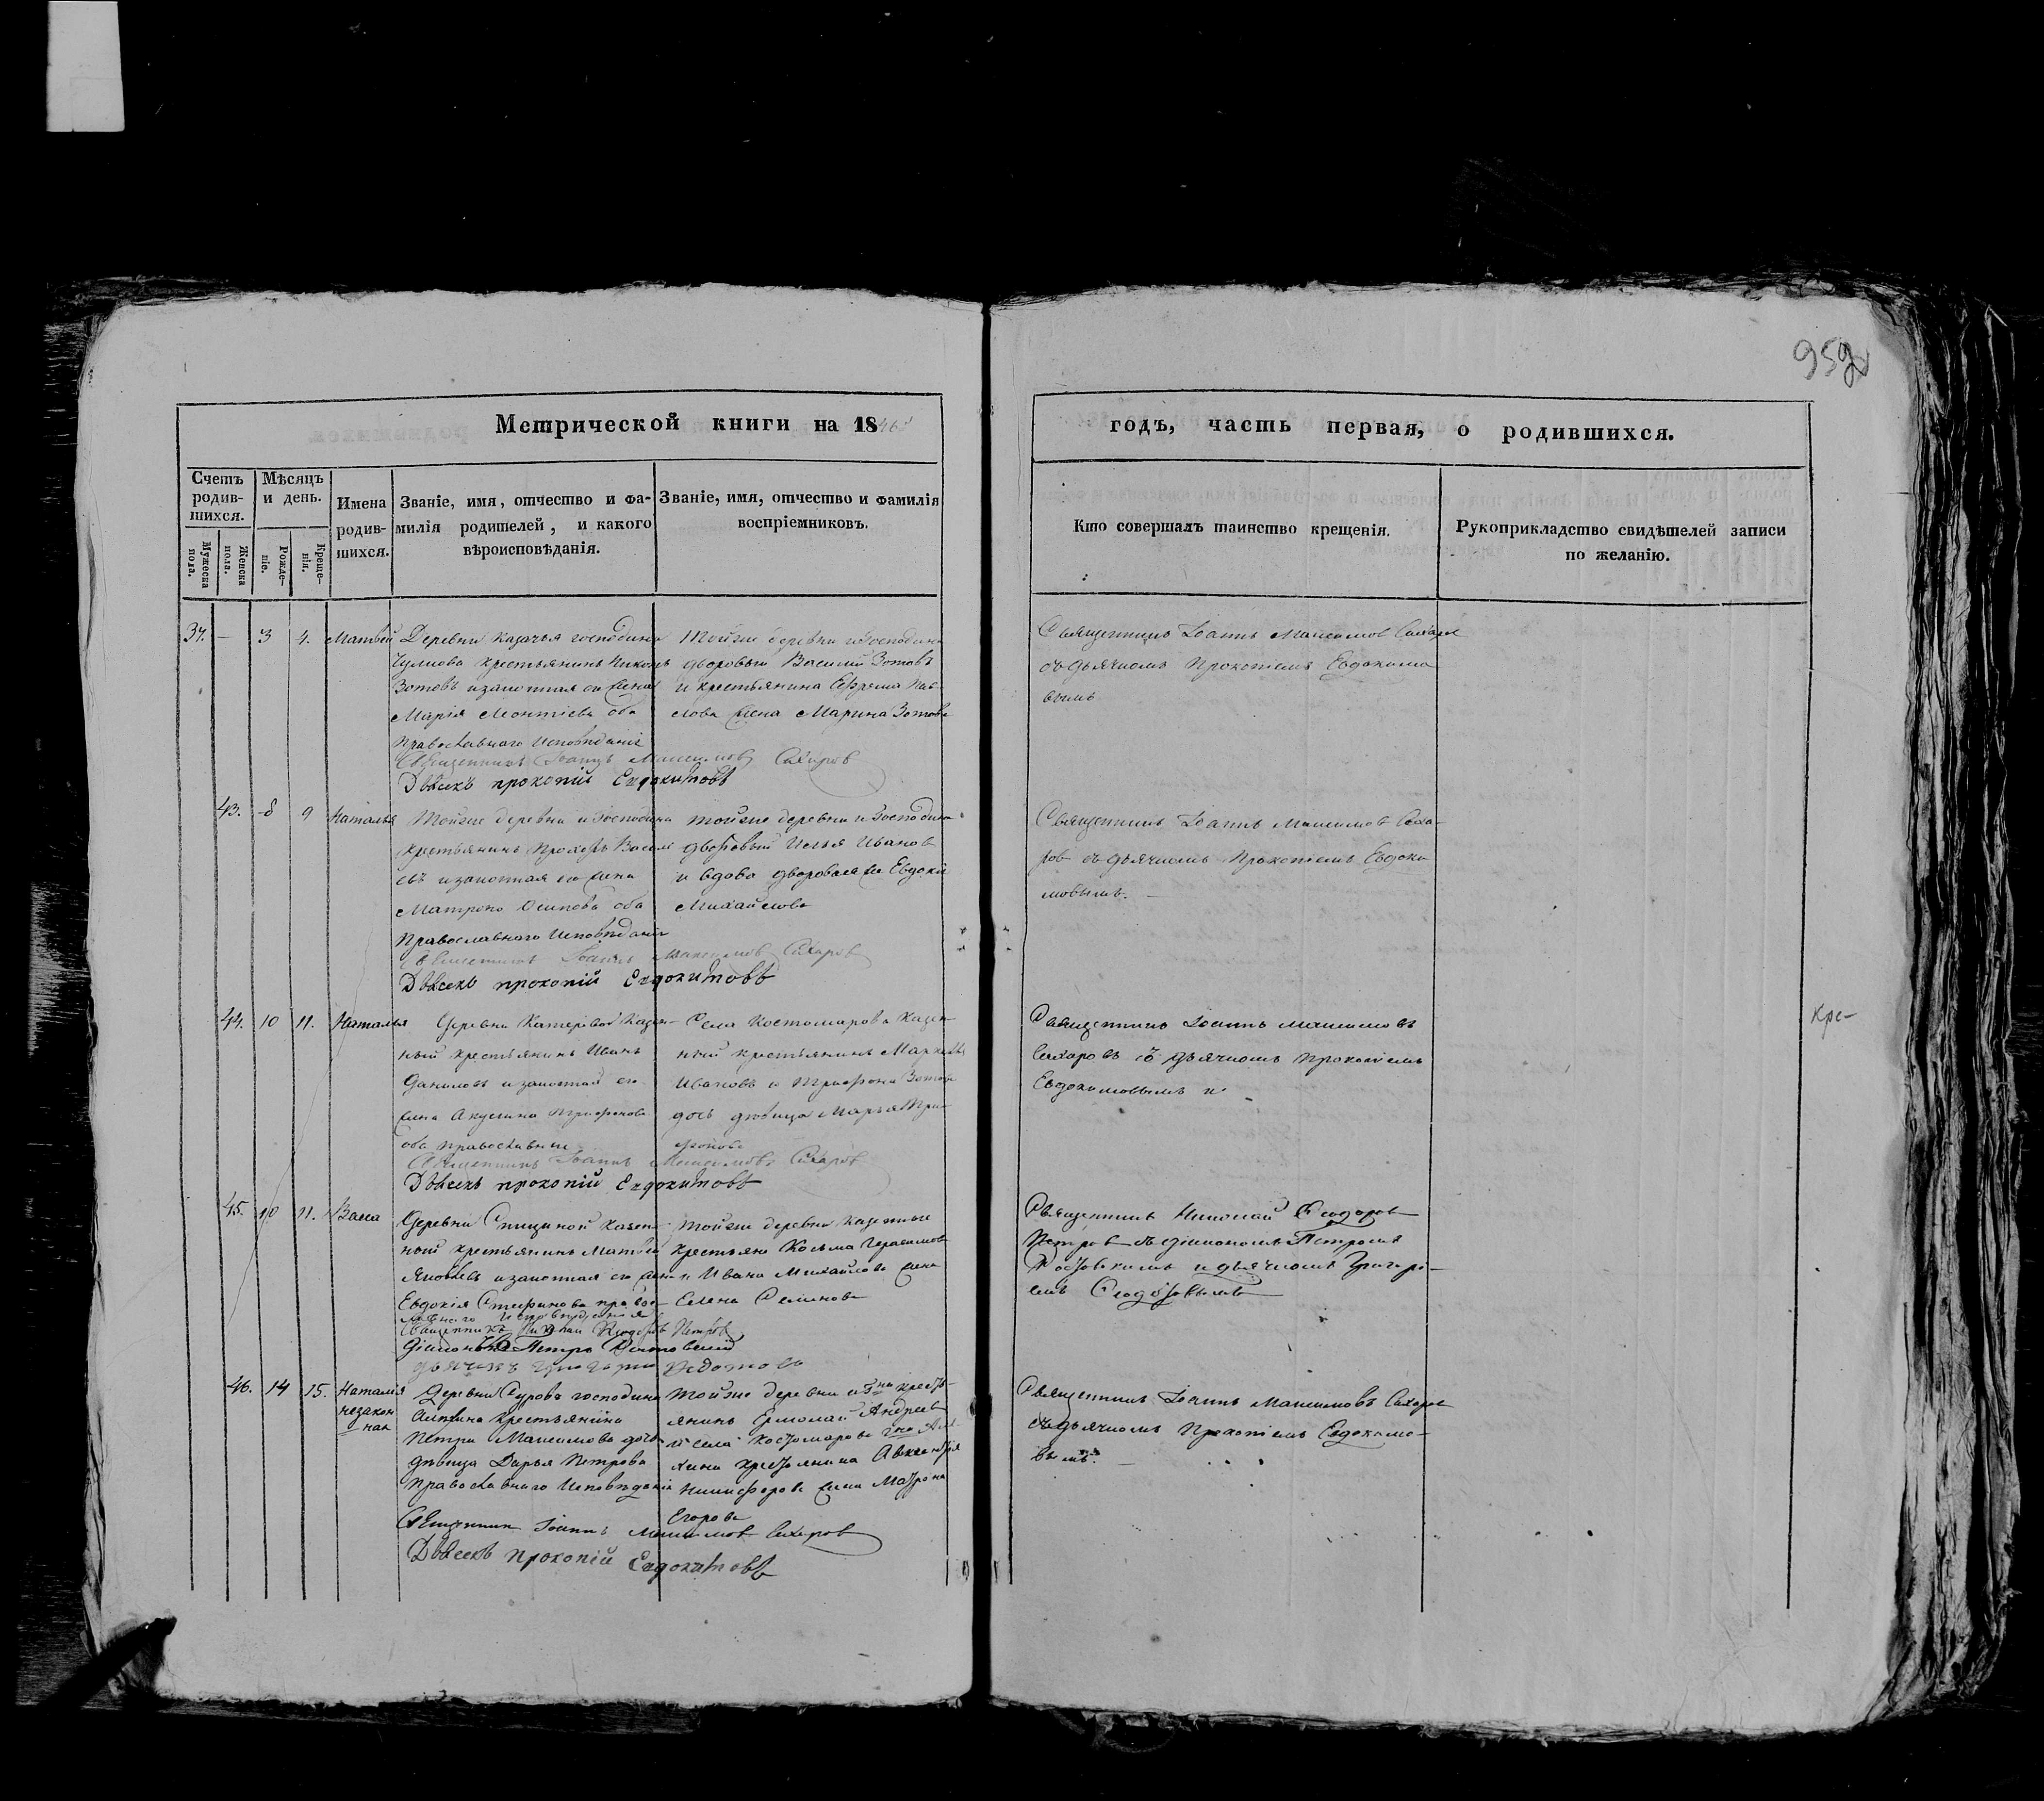 952
Метрической книги на 1846
годъ, часть первая, о родившихся.
Счетъ родив-шихся.
Мѣсяцъ и день.
Мужеска пола.
Женска пола.
Рожде-ніе.
Креще-нія.
Имена родив-шихся.
Званіе, имя, отчество и фа-
милія родителей, и какого
вѣроисповѣданія.
Званіе, имя, отчество и фамилія
воспріемниковъ.
Кто совершалъ таинство крещенія.
Рукоприкладство свидѣтелей записи
по желанію.
37. — 3 4. Матвѣй
Деревни Казачья господина
крестьянинъ
Зотовъ и законная его жена
Марія Монтіева оба
православнаго исповѣданія
Священникъ Іоаннъ Максимовъ Сахаров
Дьячекъ прокопій Евдокимовъ
Тойже деревни и господина
дворовый Василий Зотовъ
и крестьянина Ефрема Пав-
лова жена Марина Зотова
Священникъ Іоаннъ Максимов Сахаров
съ дьячкомъ Прокопіемъ Евдокимо
вымъ
43. 8 9 Наталья
Тойже деревни и господина
крестьянинъ Прохоръ Василі
евъ и законная его жена
Матрона Осипова оба
православнаго исповѣданія
Священникъ Іоаннъ Максимов Сахаров
Дьячекъ прокопій Евдокимовъ
тойже деревни и господина
дворовый Илья Иванов
и вдова дворовая Евдокія
Михайлова
Священникъ Іоаннъ Максимов Саха-
ров съ дьячкомъ Прокопіемъ Евдоки
мовымъ. —
44. 10 11. Наталья
Деревни Казен-
ный крестьянинъ Иванъ
Даниловъ и законная его
жена Акулина Трифонова
оба православныи
Священникъ Іоаннъ Максимовъ Сахаров
Дьячекъ прокопій Евдокимовъ
Села Костомарова Казен-
ный крестьянинъ
Ивановъ и Трифона Зотова
дочь девица Марья Три-
фонова
Священникъ Іоаннъ Максимовъ
Сахаровъ съ дьячкомъ Прокопіемъ
Евдокимовымъ
кре-
45. 10 11. Васса
Деревни Спициной Казен-
ный крестьянинъ Матвѣй
Яковлевъ и законная его жена
Евдокія Стефанова правос
лавнаго исповѣданія
Священникъ Николай Ѳеодоров Петров
Діаконъ Петръ Ростовский
дьячекъ Григорій
Тойже деревни казенные
крестьяне Козьма Герасимов
и Ивана Михайлова жена
Елена Семенова
Священникъ Николай Ѳеодоров
Петров съ діакономъ Петромъ
Ростовскимъ и дьячкомъ Григорі-
емъ
46. 14 15. Наталія
незакон
ная
Деревни господина
крестьянина
Петра Максимова дочь
дѣвица Дарья Петрова
православнаго исповѣданія
Священник Іоаннъ Максимов Сахаров
Дьячекъ Прокопій Евдокимовъ
Тойже деревни и Гна кресть-
янинъ Ермолай Андреев
и села Костомарова Гна
крестьянина Авксентія
Никифорова жена Матрона
Егорова
Священникъ Іоаннъ Максимовъ Сахаров
съ дьячкомъ Прокопіемъ Евдокимо-
вымъ. —